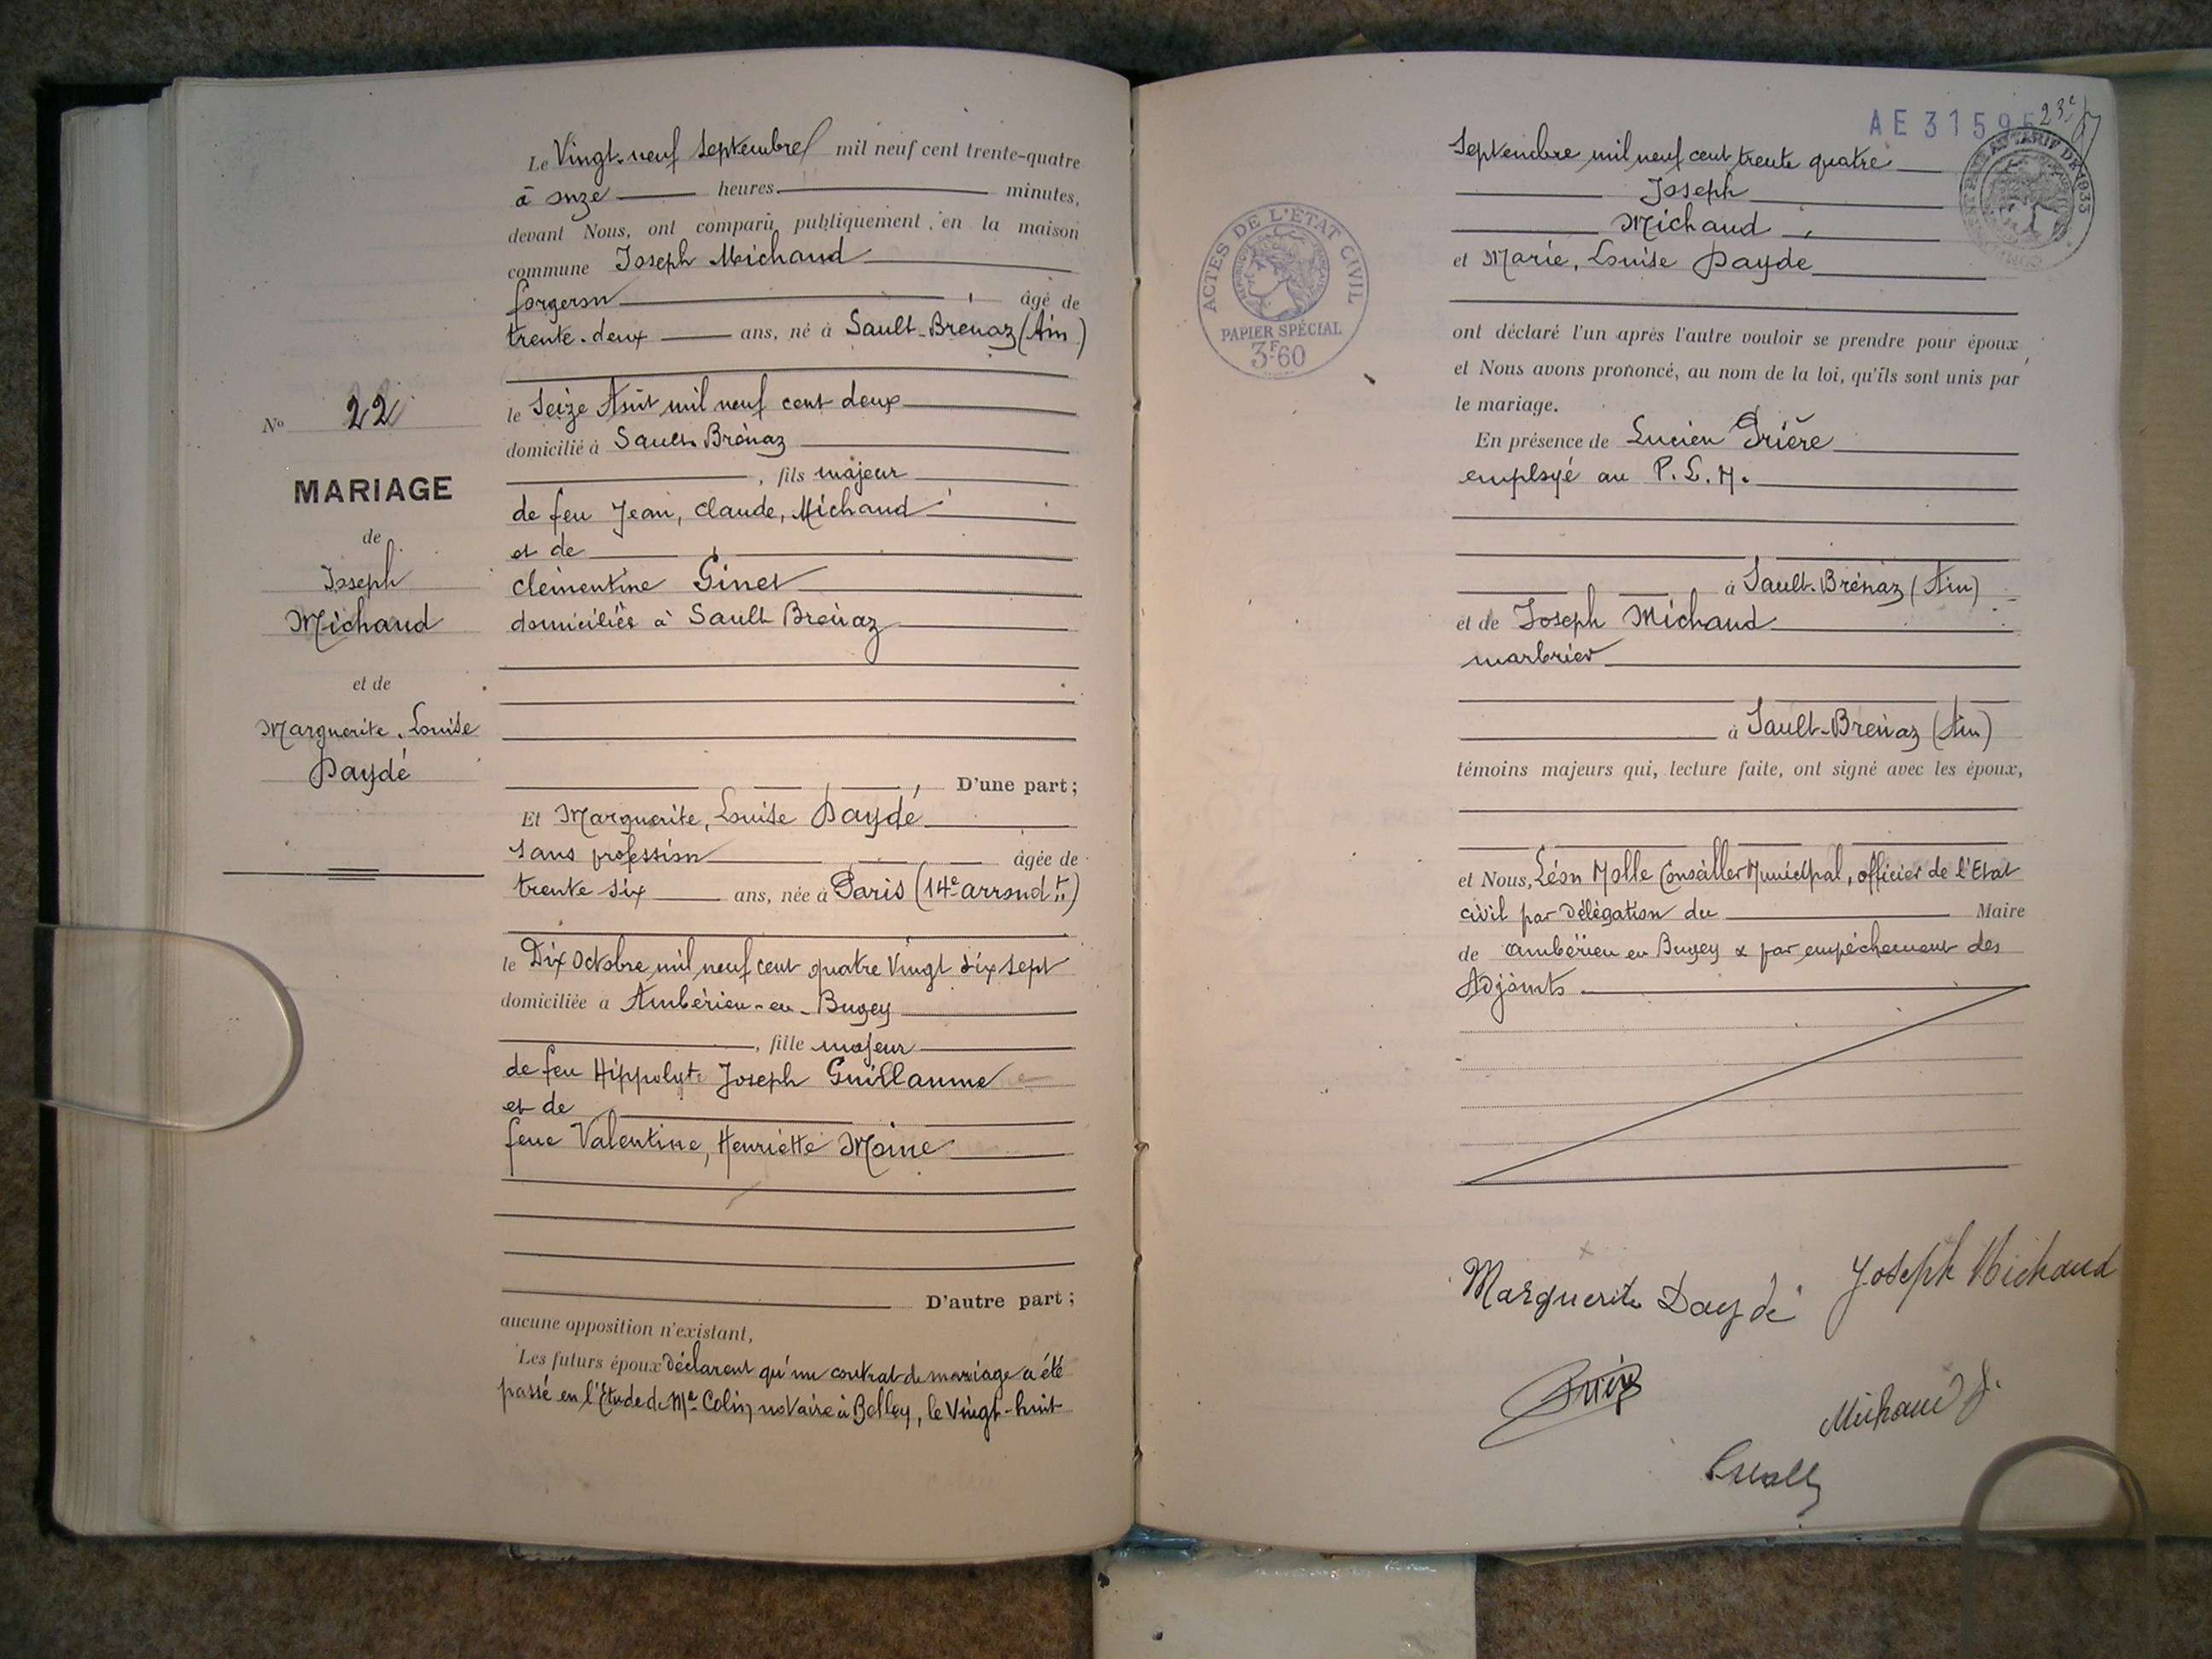 Le Vingt-neuf Septembre mil neuf cent trente-quatre
à onze heures minutes,
devant Nous, ont comparu publiquement en la maison
commune Joseph Michaud
forgeron, âgé de
trente-deux ans, né à Sault-Brénaz (Ain)
le Seize Août mil neuf cent deux
domicilié à Sault-Brénaz
, fils majeur
de feu Jean, Claude, Michaud
et de
Clémentine Ginet
domiciliés à Sault Brénaz
D'une part;
Et Marguerite, Louise Daydé
sans profession âgée de
trente six ans, née à Paris (14e arrondt)
le Dix Octobre mil neuf cent quatre Vingt dix sept
domiciliée à Ambérieu-en-Bugey
, fille majeur
de feu Hippolyte Joseph Guillaume
et de
feue Valentine, Henriette Moine
D'autre part;
aucune opposition n'existant,
Les futurs époux déclarent qu'un contrat de mariage a été
passé en l'Etude de Me Colin, notaire à Belley, le Vingt-huit
No 22
MARIAGE
de
Joseph
Michaud
et de
Marguerite, Louise
Daydé
AE 31595
23e
Septembre mil neuf cent trente quatre
Joseph
Michaud
et Marie, Louise Dayde
ont déclaré l'un après l'autre vouloir se prendre pour époux
et Nous avons prononcé, au nom de la loi, qu'ils sont unis par
le mariage.
En présence de Lucien Prière
employé au P.L.M.
à Sault-Brénaz (Ain)
et de Joseph Michaud
marbrier
à Sault-Brénaz (Ain)
témoins majeurs qui, lecture faite, ont signé avec les époux,
et Nous, Léon Molle Conseiller Municipal, officier de l'Etat
civil par délégation du Maire
de Ambérieu en Bugey & par empêchement des
Adjoints
ACTES DE L'ÉTAT CIVIL
PAPIER SPÉCIAL
3F60
TARIF DE 1933
Marguerite Daydé Joseph Michaud
Michaud J.